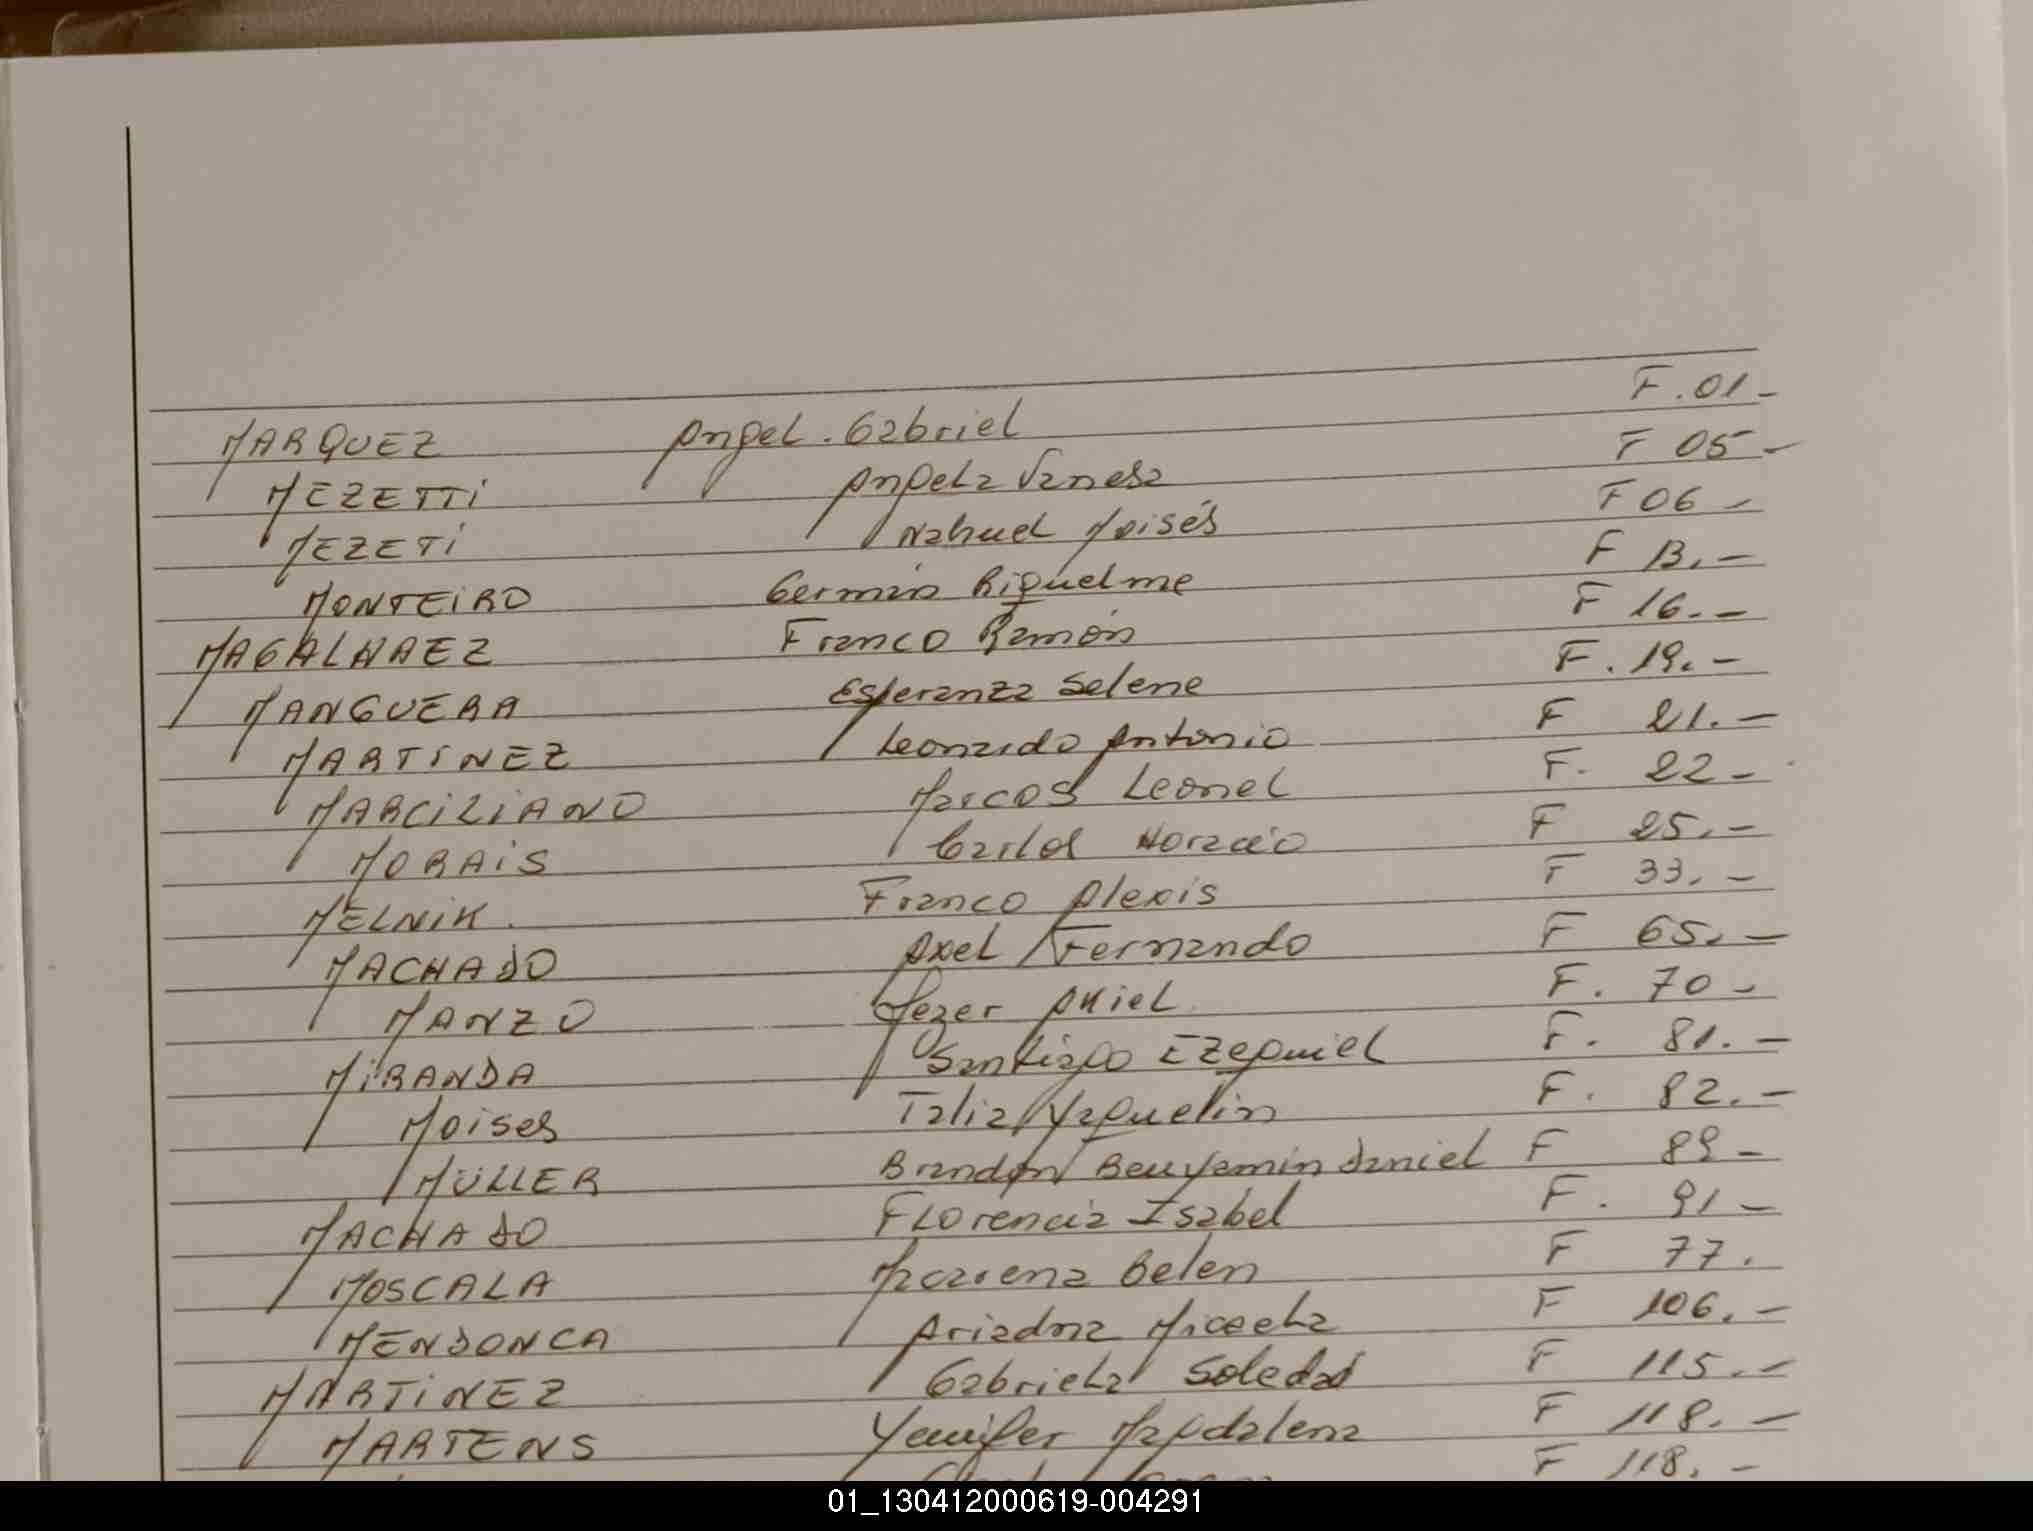 MARQUEZ Angel. Gabriel F.01-
MEZETTI Angela Vanesa F 05-
MEZETI Nahuel Moisés F 06-
MONTEIRO Germán Riquelme F 13.-
MAGALHAEZ Franco Ramón F 16.-
MANGUERA Esperanza Selene F.19.-
MARTINEZ Leonardo Antonio F 21.-
MARCILIANO Marcos Leonel F. 22-
MORAIS Carlos Horacio F 25.-
MELNIK. Franco Alexis F 33.-
MACHADO Axel Fernando F 65.-
MANZO Mezer Akiel F. 70-
MIRANDA Santiago Ezequiel F. 81.-
MOISES Talia Yaquelin F. 82.-
MÜLLER Brandon Benyamin Daniel F 89-
MACHADO Florencia Isabel F. 91-
MOSCALA Macarena Belen F 77.
MENDONCA Ariadna Micaela F 106.-
MARTINEZ Gabriela Soledad F 115.-
MARTENS Yenifer Magdalena F 118.-
F 118.-
01_130412000619-004291